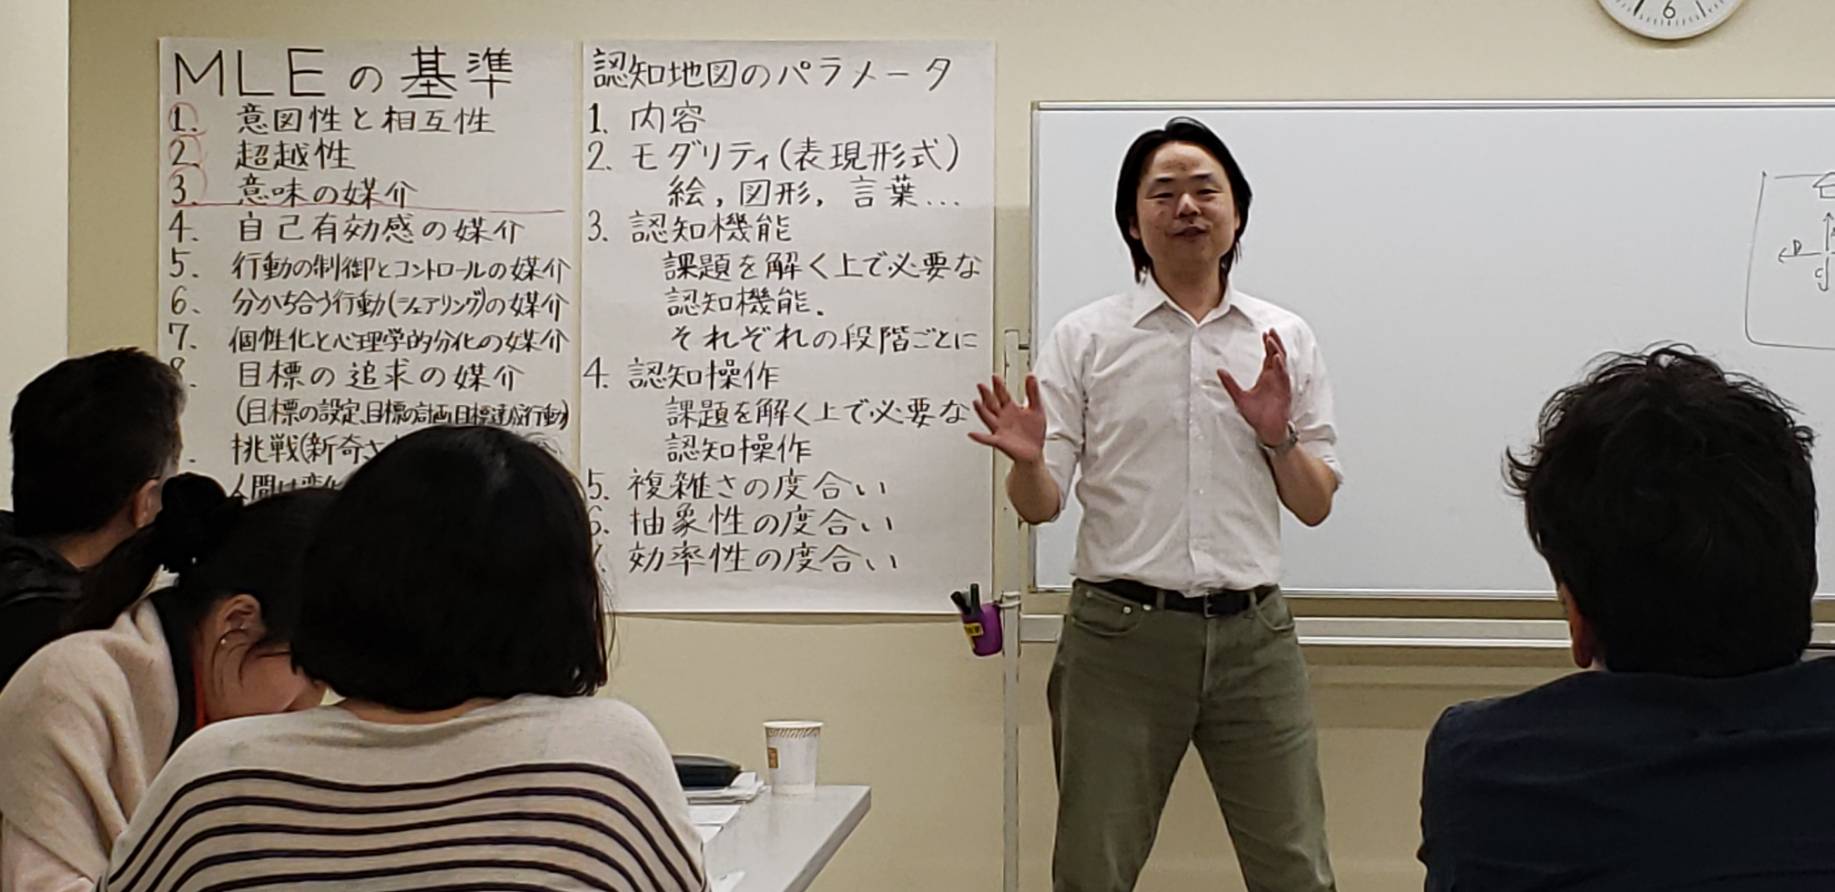 MLEの基準
1. 意図性と相互性
2. 超越性
3. 意味の媒介
4. 自己有効感の媒介
5. 行動の制御とコントロールの媒介
6. 分かち合う行動(シェアリング)の媒介
7. 個性化と心理学的分化の媒介
8. 目標の追求の媒介
(目標の設定、目標の計画、目標達成行動)
挑戦(新奇さ
人間は変化
認知地図のパラメータ
1. 内容
2. モダリティ(表現形式)
絵, 図形, 言葉...
3. 認知機能
課題を解く上で必要な
認知機能.
それぞれの段階ごとに
4. 認知操作
課題を解く上で必要な
認知操作
5. 複雑さの度合い
6. 抽象性の度合い
効率性の度合い
6